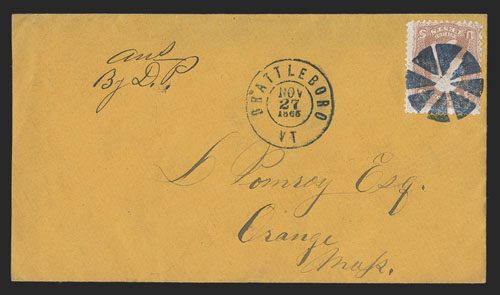 ans
By D. P.
BRATTLEBORO
NOV
27
1865
VT
U 3 S
Pomroy Esq.
Orange
Mass.